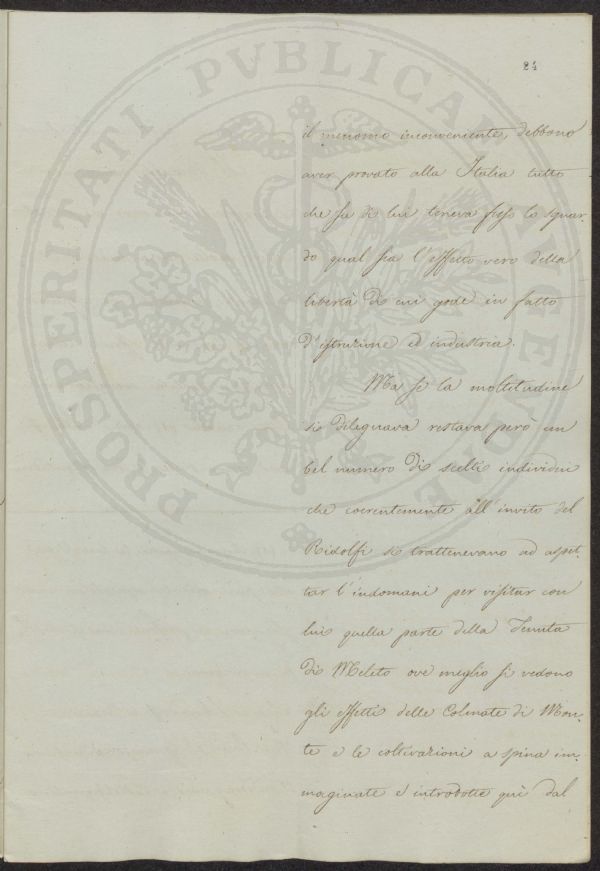 24
il menomo inconveniente, debbono
aver provato alla Italia tutto
che su di lui teneva fisso lo sguar-
do qual sia l'effetto vero della
libertà di cui gode in fatto
d'istruzione ed industria.
Ma se la moltitudine
si dileguava restava però un
bel numero di scelti individui
che coerentemente all'invito del
Ridolfi si trattenevano ad aspet-
tar l'indomani per visitar con
lui quella parte della Tenuta
di Meleto ove meglio si vedono
gli effetti delle Colmate di Mon-
te e le coltivazioni a spina im-
maginate e introdotte quì dal
PROSPERITATI PVBLICAE AVGENDAE